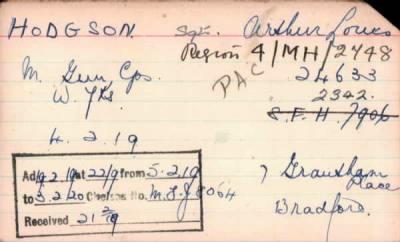 HODGSON. Sgt. Arthur Louis
Region 4/MH/2748
M. Gun Cps. PAC 24633
W. Yks. 2342.
S.F.H 7906
4. 2. 19
Adj 9 2 19 at 22/9 from 5.2.19
to 3.2.20 Chelsea No. M.L.J 8064
Received 21 2/19
7 Grantham
Place
Bradford.